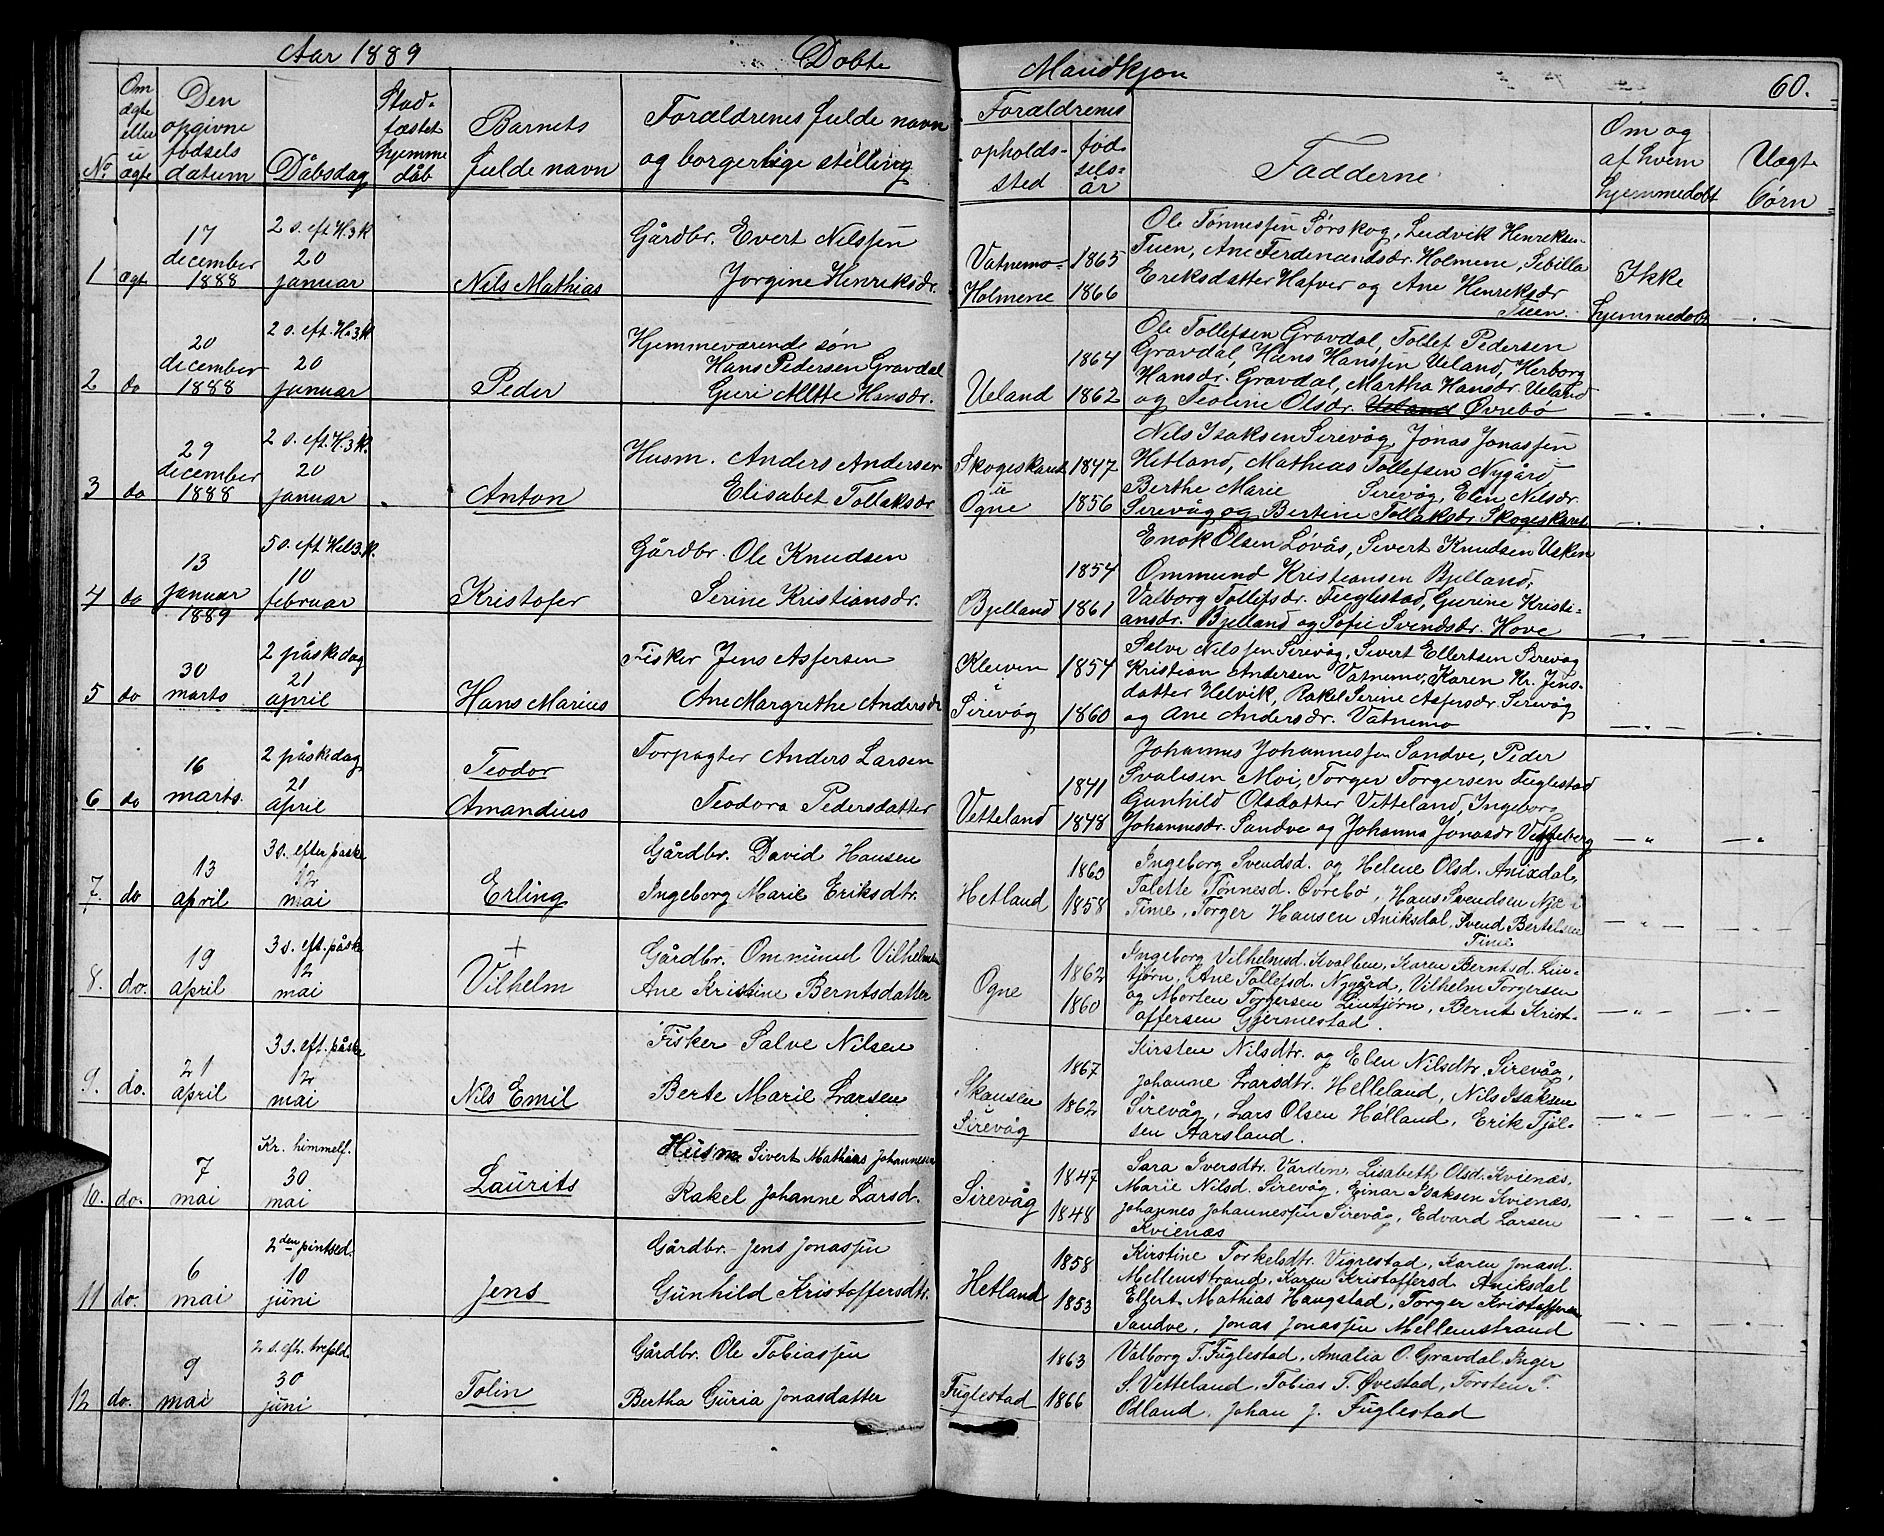 Aar 1889 Døbte Mandkjøn 60.
No
Om ægte eller uægte
Den opgivne fødsels datum
Dåbsdag
Stadfæstet hjemmedåb
Barnets fulde navn
Forældrenes fulde navn og borgerlige stilling
Forældrenes opholdssted
fødselsår
Fadderne
Om og af hvem hjemmedøbt
Uægte børn
1 ægt
17 december 1888
2 s. eft. H.3.K 20 januar
Nils Mathias
Gårdbr. Evert Nilssen
Jorgine Henriksdr.
Vatnemo-Holmene
1865
1866
Ole Tønnessen Sørskog, Ludvik Henriksen
Tuen, Ane Ferdinandsdr. Holmene, Sibilla
Eriksdatter Hafver og Ane Henriksdr
Tuen.
Ikke hjemmedøbt
2 do
20 december 1888
2 s. eft. H.3.K 20 januar
Peder
Hjemmeværende søn
Hans Pedersen Gravdal
Guri Mette Hansdr.
Ueland
1864
1862
Ole Tollefsen Gravdal, Tollef Pedersen
Gravdal, Hans Hanssen Ueland, Herborg
Hansdr. Gravdal, Martha Hansdr. Ueland
og Teoline Olsdr. Ueland Øvrebø
3 do
29 december 1888
2 s. eft. H.3.K. 20 januar
Anton
Husm. Anders Andersen
Elisabet Tollaksdr
Skogeskaret u Ogne
1847
1856
Nils Isaksen Sirevåg, Jonas Jonassen
Hetland, Mathias Tollefsen Nygård,
Berthe Marie Sirevåg, Elen Nilsdr.
Sirevåg og Bertine Tollaksdr. Skogeskaret
4 do
13 januar 1889
5 s. eft. Hel.3.K. 10 februar
Kristofer
Gårdbr. Ole Knudsen
Serine Kristiansdr.
Bjelland
1854
1861
Enok Olsen Løvås, Sivert Knudsen Usken
Ommund Kristiansen Bjelland,
Valborg Tollifsdr. Fuglestad, Gurine Kristi-
ansdr. Bjelland og Sofie Svendsdr. Hove
5 do
30 marts
2 påskedag 21 april
Hans Marius
Fisker Jens Asfersen
Ane Margrethe Andersdr
Kleiven i Sirevåg
1854
1860
Salve Nilssen Sirevåg, Sivert Ellertsen Sirevåg
Kristian Andersen Vatnemo, Karen Kr. Jens-
datter Helvik, Rakel Serine Asfersdr. Sirevåg
og Ane Andersdr. Vatnemo
6 do
16 marts.
2 påskedag 21 april
Teodor Amandius
Forpagter Anders Larsen
Teodora Pedersdatter
Vetteland
1841
1848
Johannes Johannessen Sandve, Peder
Svalesen Moi, Torger Torgersen Fuglestad
Gunhild Olsdatter Vetteland, Ingeborg
Johannesdr. Sandve og Johanna Jonasdr
7. do
13 april
3 s. efter påske 12 mai
Erling
Gårdbr. David Hansen
Ingeborg Marie Eriksdtr.
Hetland
1863
1858
Ingeborg Svendsd. og Helene Olsd. Anixdal,
Talette Tønnesd. Øvrebø, Hans Svendsen Njæ i
Time, Torger Hansen Aniksdal, Svend Bertelsen
Time
8. do.
19 april
3 s. eft. påske 12 mai
+
Vilhelm
Gårdbr. Ommund Vilhelmsen
Ane Kristine Berntsdatter
Ogne
1862
1860
Ingeborg Vilhelmsd. Kvalbein, Karen Berntsd. Lin-
tjørn, Ane Tollefsd. Nygård, Vilhelm Torgersen
og Morten Torgersen Lintjørn, Bernt Krist-
offersen Gjermestad.
9. do.
21 april
3 s. eft. påske 12 mai
Nils Emil
Fisker Salve Nilsen
Berte Marie Larsen
Skansen Sirevåg
1867
1862
Kirsten Nilsdtr. og Elen Nilsdtr. Sirevåg,
Johanne Larsdtr. Helleland, Nils Isaksen
Sirevåg, Lars Olsen Hølland, Erik Tjøl-
sen Aarsland.
10. do.
7 mai
Kr. himmelf. 30 mai
Laurits
Husm. Sivert Mathias Johannesen
Rakel Johanne Larsd.
Sirevåg
1847
1848
Sara Iversdtr. Varden, Lisabeth Olsd. Kvienæs,
Marie Nilsd. Sirevåg, Einar Isaksen Kvienæs,
Johannes Johannessen Sirevåg, Edvard Larsen
Kvienæs
11 do.
6 mai
2den pintsed. 10 juni
Jens
Gårdbr. Jens Jonassen
Gunhild Kristoffersdtr.
Hetland
1858
1853
Kirstine Torkelsdtr. Vigrestad, Karen Jonasd.
Mellemstrand, Karen Kristoffersd. Aniksdal
Elfert Mathias Haugstad, Torger Kristoffersen
Sandve, Jonas Jonassen Mellemstrand
12 do.
9 mai
2 s. eft. trefold. 30 juni
Tolin
Gårdbr. Ole Tobiassen
Bertha Guria Jonasdatter
Fuglestad
1863
1866
Valborg T. Fuglestad, Amalia O. Gravdal, Inger
S. Vetteland, Tobias T. Øvestad, Torsten T.
Ødland, Johan J. Fuglestad